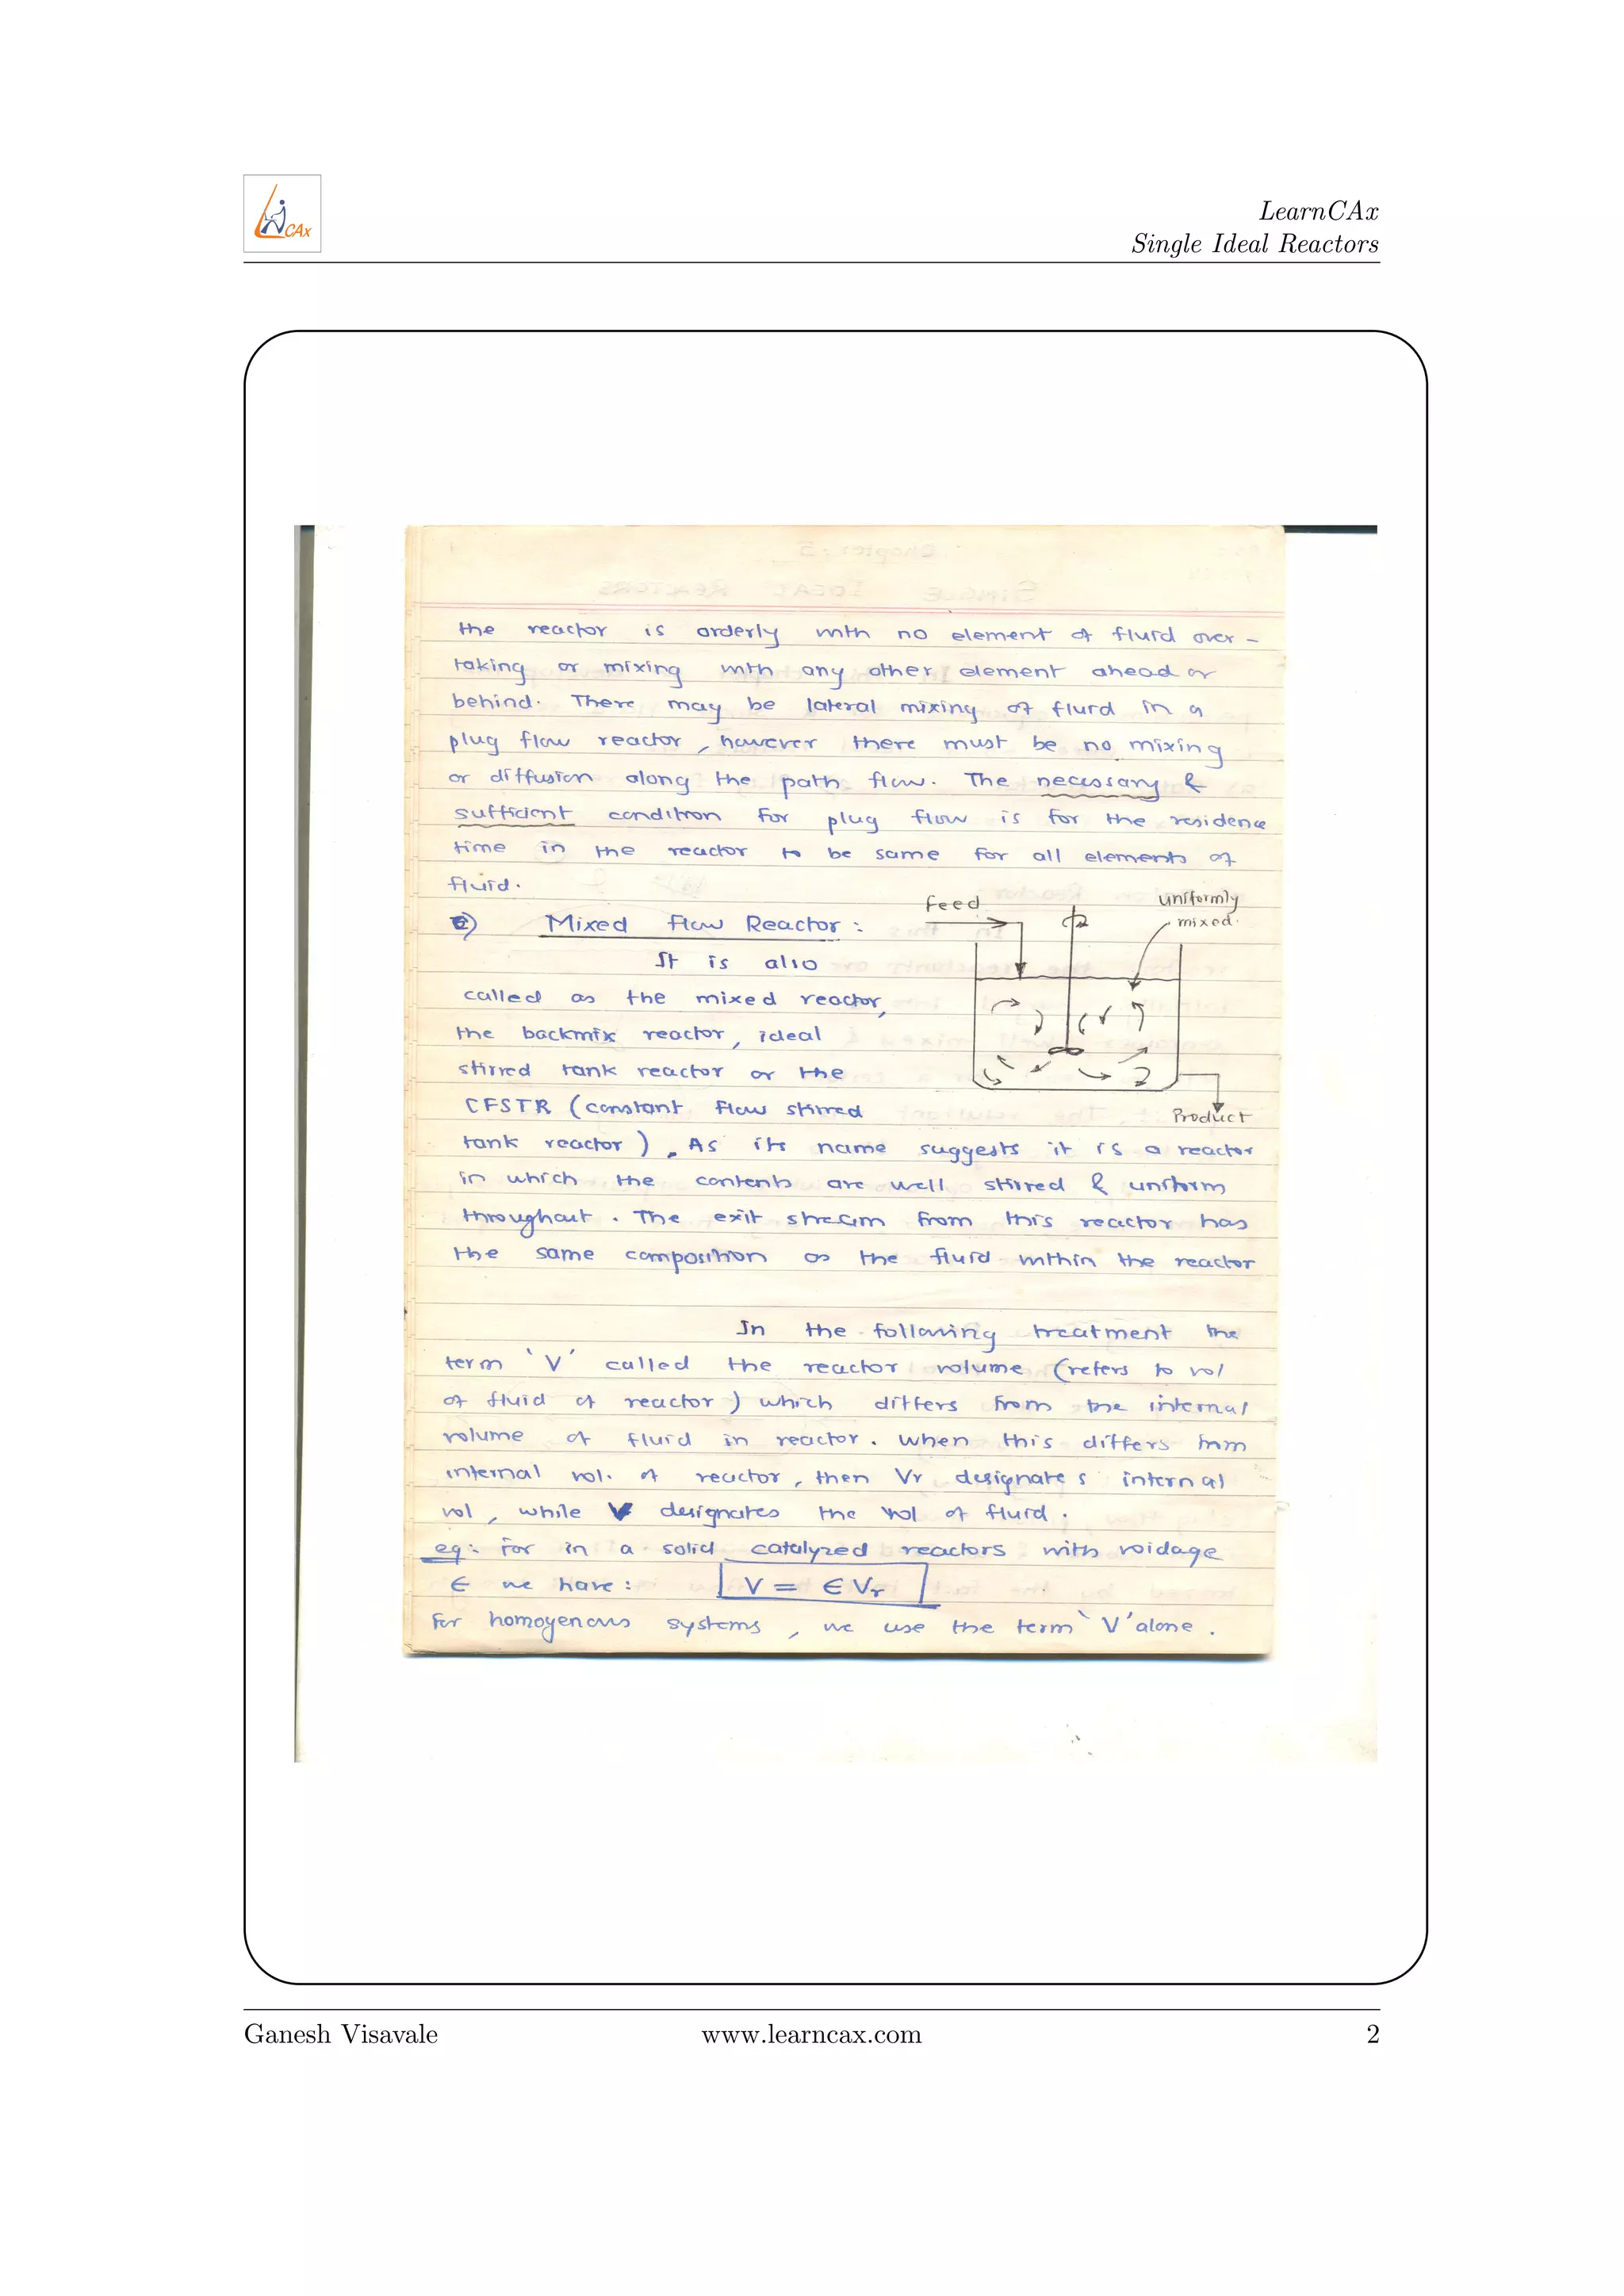 CAx
LearnCAx
Single Ideal Reactors
the reactor is orderly with no element of fluid over-
taking or mixing with any other element ahead or
behind. There may be lateral mixing of fluid in a
plug flow reactor, however there must be no mixing
or diffusion along the path flow. The necessary &
sufficient condition for plug flow is for the residence
time in the reactor to be same for all elements of
fluid.
2) Mixed flow Reactor:
Feed
uniformly
mixed.
It is also
called as the mixed reactor,
the backmix reactor, ideal
stirred tank reactor or the
CFSTR (constant flow stirred
Product
tank reactor). As its name suggests it is a reactor
in which the contents are well stirred & uniform
throughout. The exit stream from this reactor has
the same composition as the fluid within the reactor
In the following treatment the
term 'V' called the reactor volume (refers to vol
of fluid of reactor) which differs from the internal
volume of fluid in reactor. When this differs from
internal vol. of reactor, then Vr designates internal
vol, while V designates the vol of fluid.
eg: For in a solid catalyzed reactors with voidage
∈ we have: V = ∈Vr
for homogenous systems, we use the term 'V' alone.
Ganesh Visavale
www.learncax.com
2